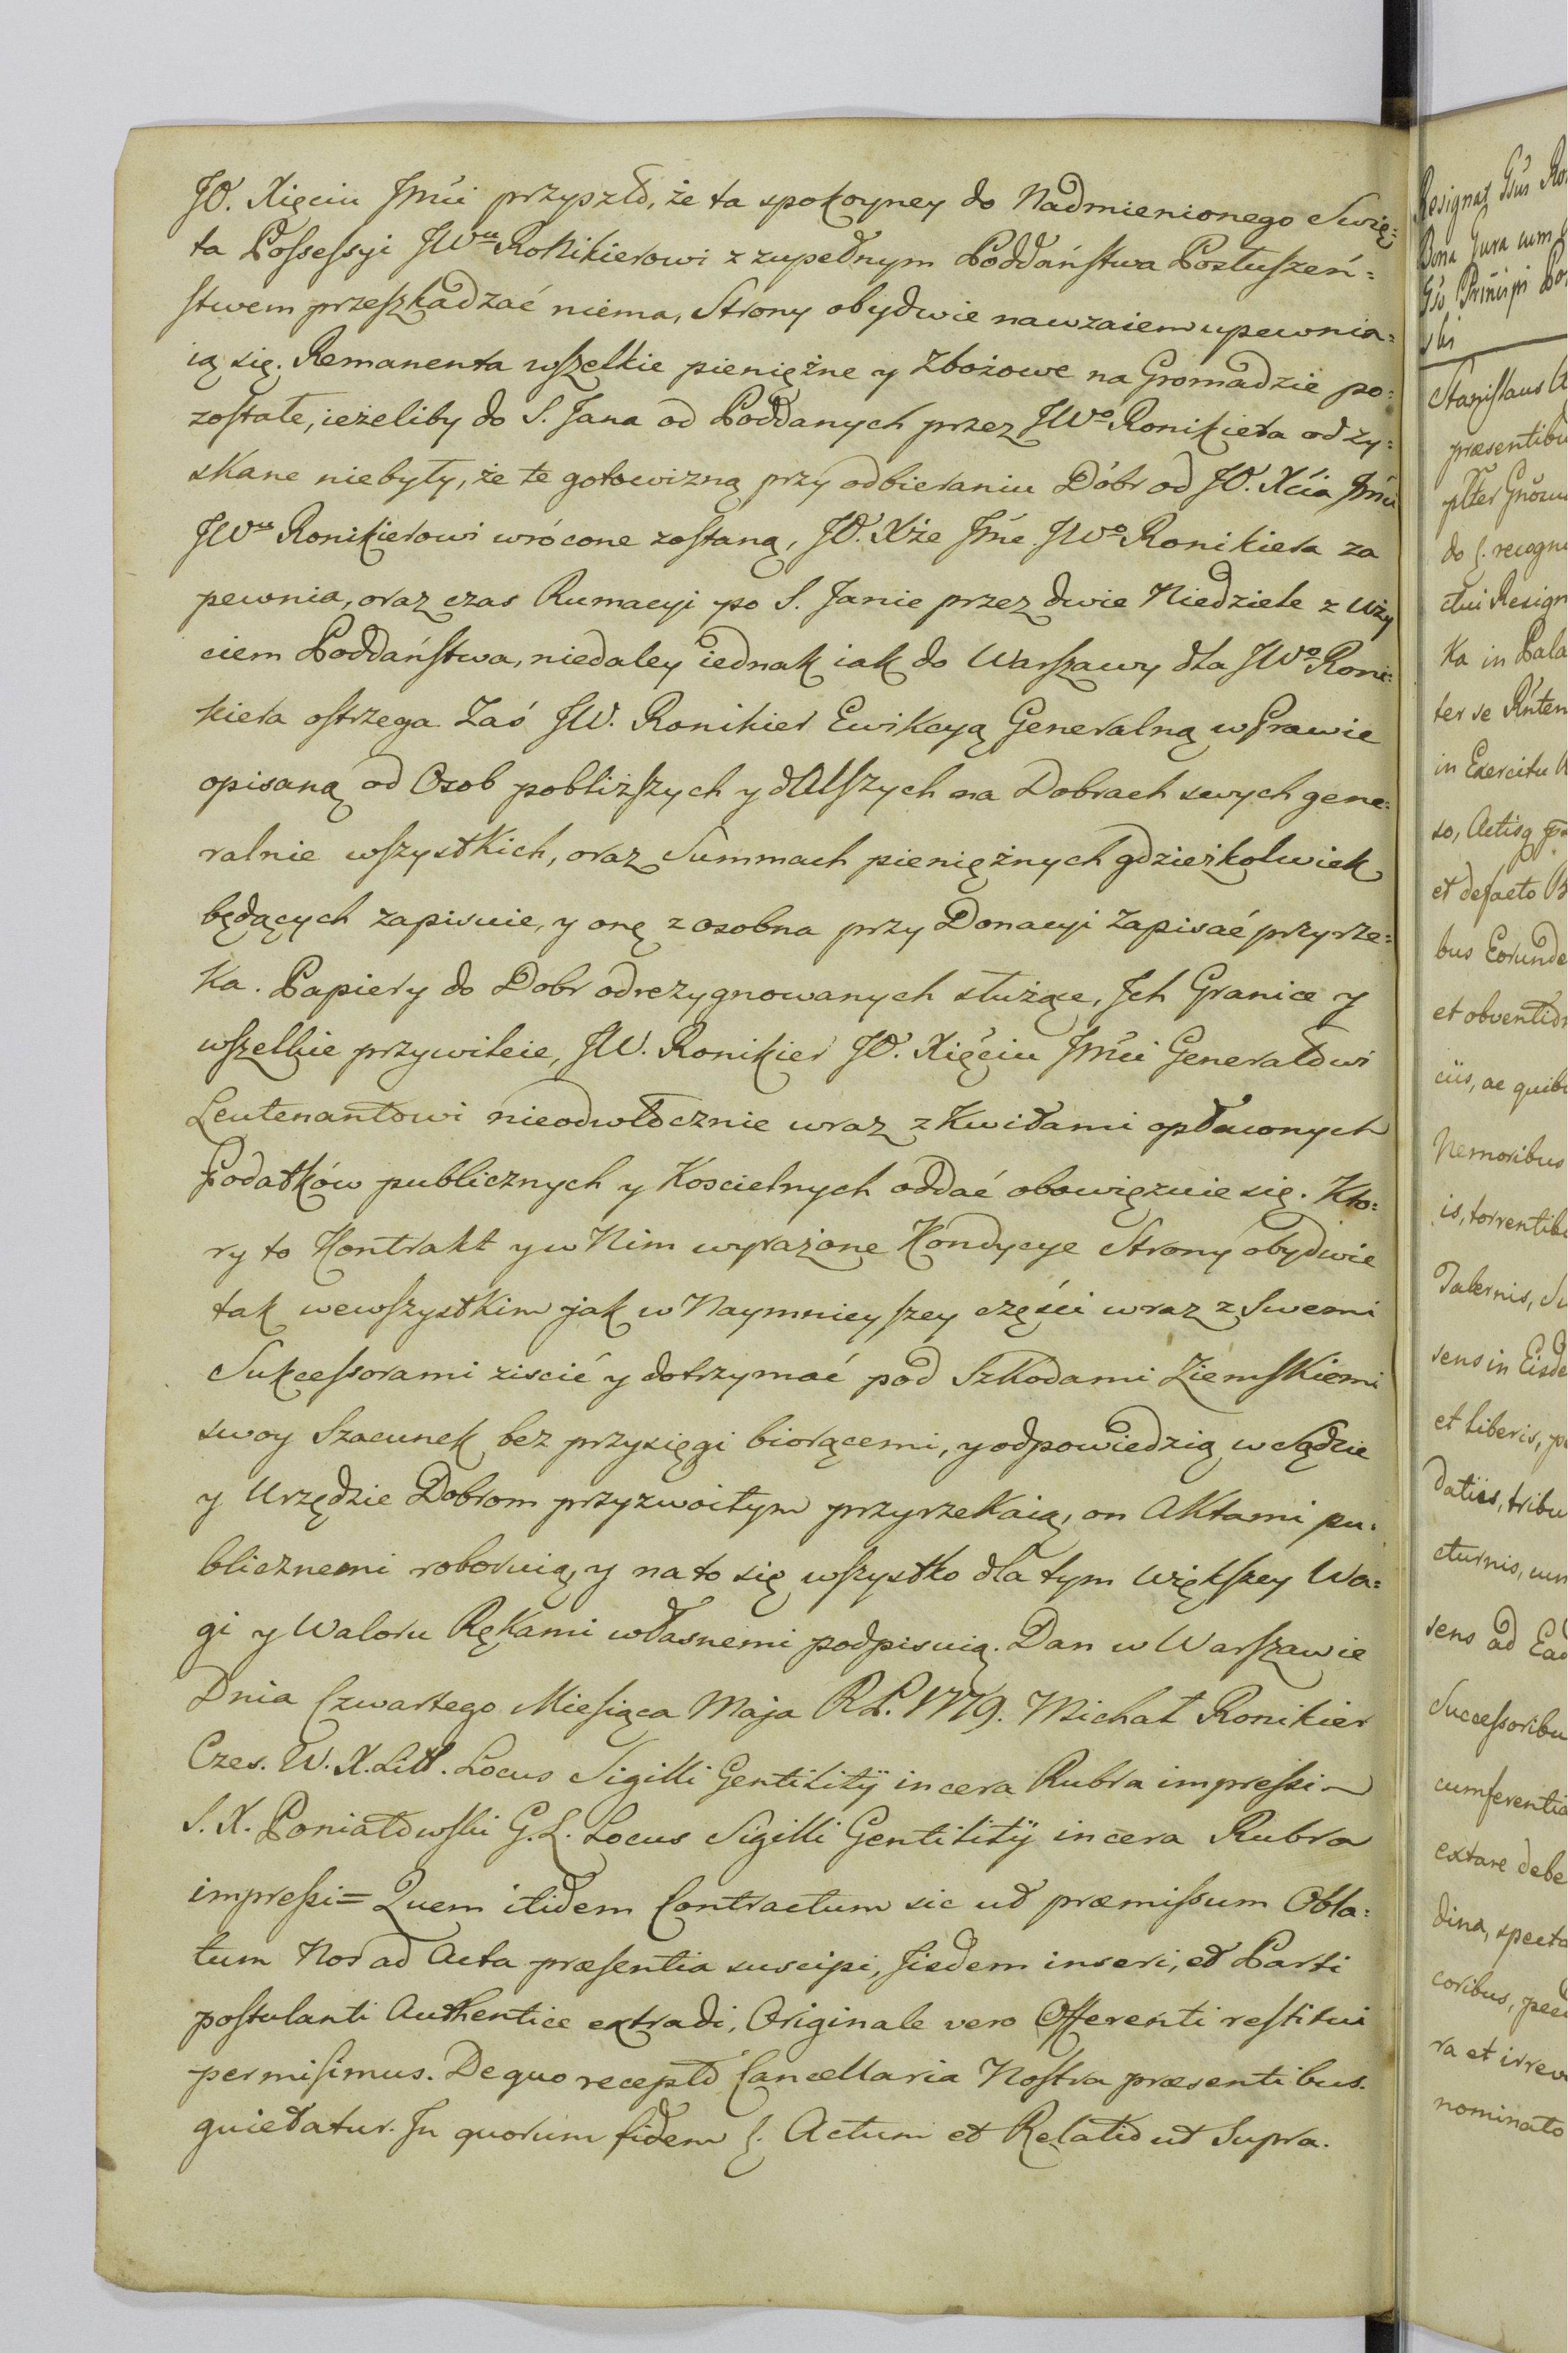 JO. Xięciu Jmci przyszło, że ta spokoyney do Nadmienionego Swię=
ta Possessyi JWu Ronikierowi z zupełnym Poddaństwa Posłuszeń=
stwem przeszkadzać niema, Strony obydwie nawzaiem upewnia=
ią się. Remanenta wszelkie pieniężne y Zbożowe na Gromadzie po=
zostałe, ieżeliby do S. Jana od Poddanych przez JWo Ronikiera odzy=
skane niebyły, że te gotowizną przy odbieraniu Dóbr od JO. Xcia Jmci
JWu Ronikierowi wrócone zostaną, JO. Xże Jmc JWo Ronikiera za
pewnia, oraz czas Rumacyi po S. Janie przez dwie Niedziele z uży
ciem Poddaństwa, niedaley iednak iak do Warszawy dla JWo Roni=
kiera ostrzega. Zaś JW. Ronikier Ewikcyą Generalną w Prawie
opisaną od Osob pobliższych y dalszych na Dobrach swych gene=
ralnie wszystkich, oraz Summach pieniężnych gdzieżkolwiek
będących zapisuie, y onę z osobna przy Donacyi zapisać przyrze=
ka. Papiery do Dobr odrezygnowanych służące, Jch Granice y
wszelkie przywileie, JW. Ronikier JO. Xięciu Jmci Generałowi
Leutenantowi nieodwłocznie wraz z Kwitami opłaconych
Podatków publicznych y Koscielnych oddać obowięzuie się. Kto=
ry to Kontrakt y w Nim wyrażone Kondycye Strony obydwie
tak wewszystkim jak w Naymnieyszey części wraz z Swemi
Sukcessorami ziscić y dotrzymać pod Szkodami Ziemskiemi
swoy Szacunek bez przysięgi biorącemi, y odpowiedzią w Sądzie
y Urzędzie Dobrom przyzwoitym przyrzekaią, on Aktami pu=
blicznemi roboruią, y na to się wszystko dla tym większey Wa=
gi y Waloru Rękami własnemi podpisuią. Dan w Warszawie
Dnia Czwartego Miesiąca Maja R.P. 1779. Michał Ronikier
Czes. W. X. Litt. Locus Sigilli Gentilitÿ in cera Rubra impressi ~
S. X. Poniatowski G. L. Locus Sigilli Gentilitÿ in cera Rubra
impressi = Quem itidem Contractum sic ut præmissum Obla=
tum Nos ad Acta præsentia suscipi, Jisdem inseri, et Parti
postulanti Authentice extradi, Originale vero Offerenti restitui
permisimus. De quo recepto Cancellaria Nostra præsentibus
quietatur. Jn quorum fidem &. Actum et Relatio ut Supra.
Bona Jura cum
ski
Stanislaus
præsentibu
do &. recogn
ctui Resign
ka in Pala
in Exercitu
et defacto B
bus Eorunde
et obventio
ciis, ac quib
Nemoribus
is, torrentib
Tabernis, Su
sens in Eisde
et liberis, p
datiis, tribu
sens ad Ead
Successoribu
cumferentia
extare debe
dina, specta
coribus, pec
ra et irrevo
nominato